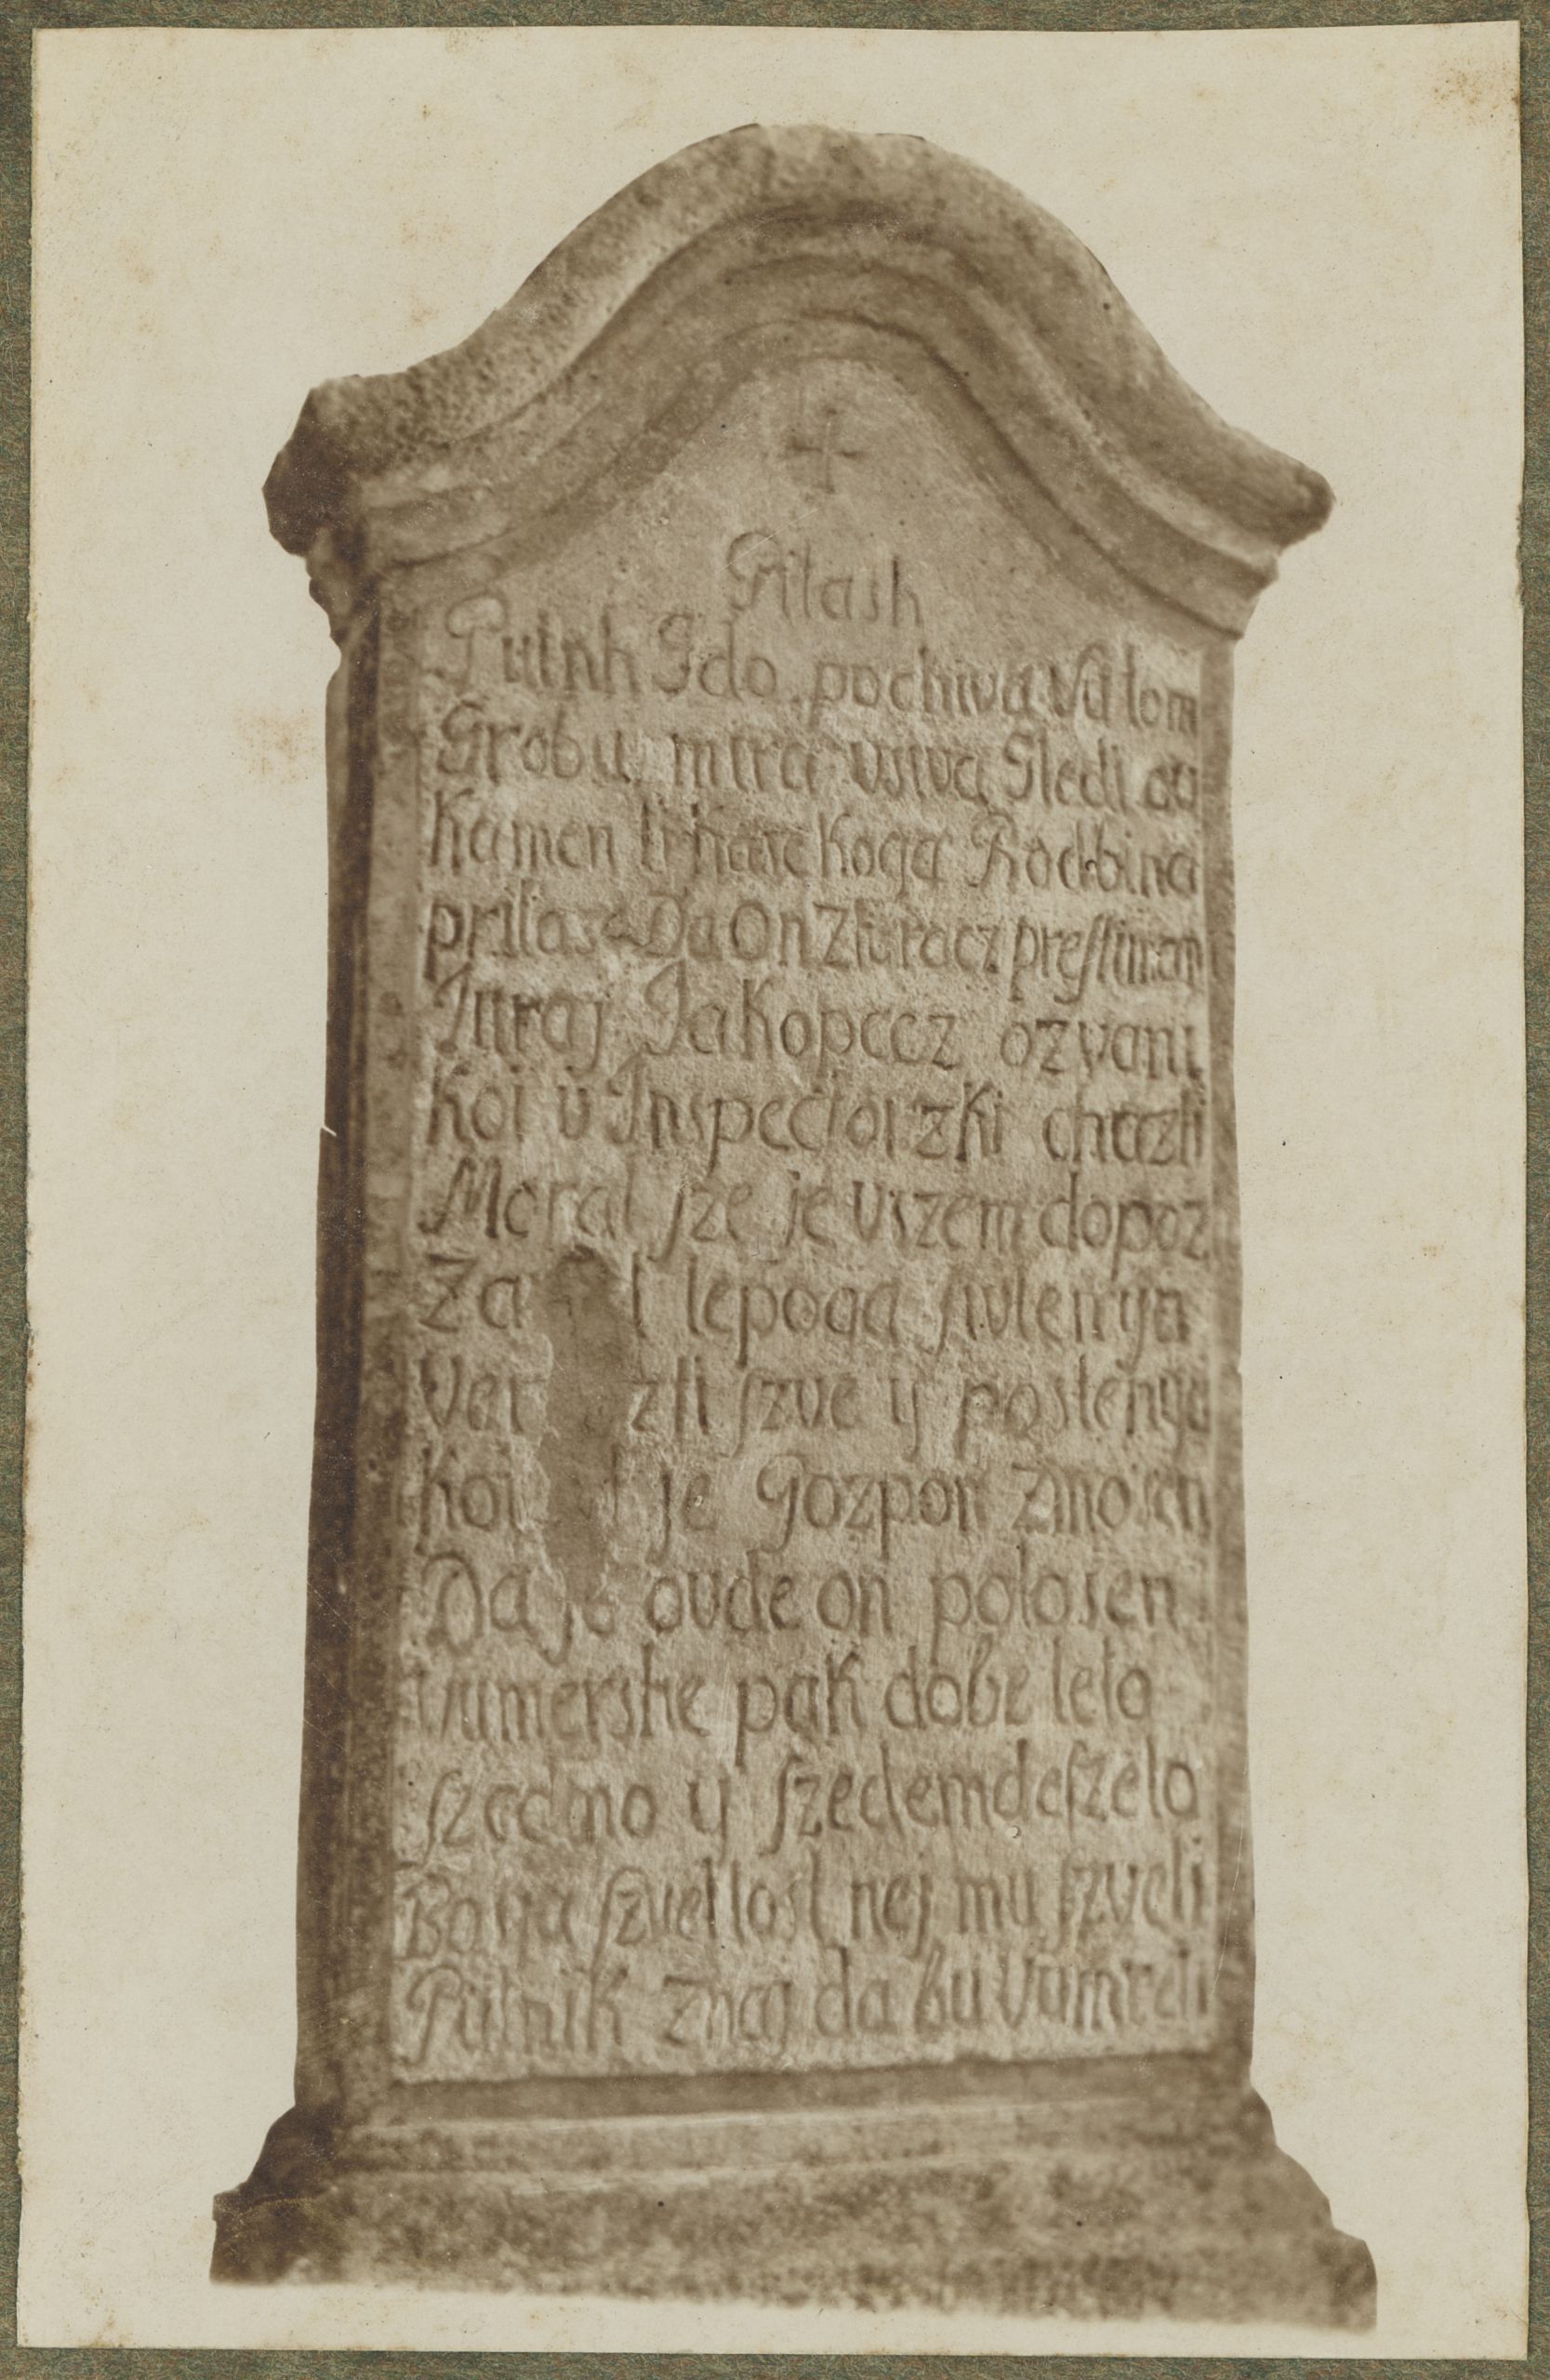 Pitash
Putnik Gdo pochiva Va tom
Grobu mira vsiva Sledi ov
Kamen koga Rodbina
On
Juraj Jakopecz ozvani
Koi v Inspectorzki chazti
Moral sze je vszem dopoz
Za t lepoga sivlenya
Ver zti szve ij postenya
Koi je gozpon znosen
Da je ovde on polosen
vumershe pak dobe leto
szedmo ij szedemdeszeto
Boija szvetlost nej mu szveti
Putnik znaj da bu Vumreti